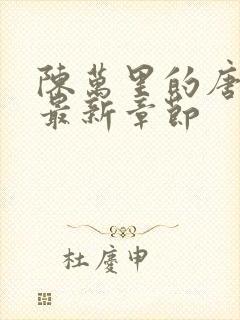 陳萬里的唐
最新章節
杜慶申